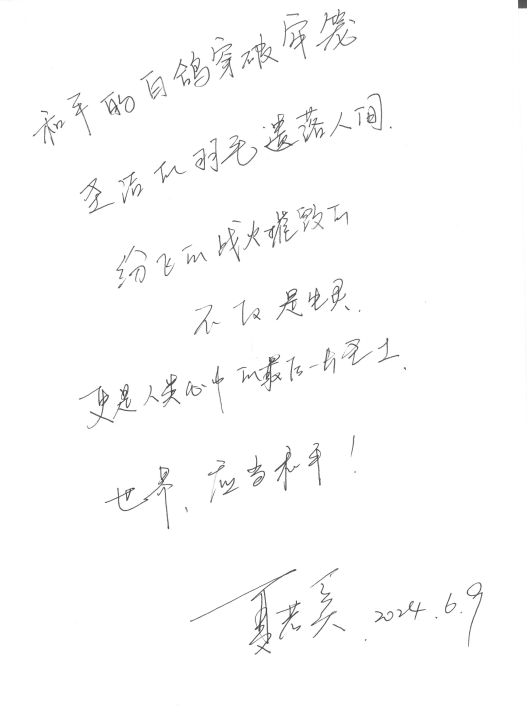 和平的白鸽穿破牢笼
圣洁的羽毛遗落人间.
纷飞的战火摧毁的
不仅是生灵.
更是人类心中的最后一片圣土.
世界、应当和平!
夏若美.2024.6.9